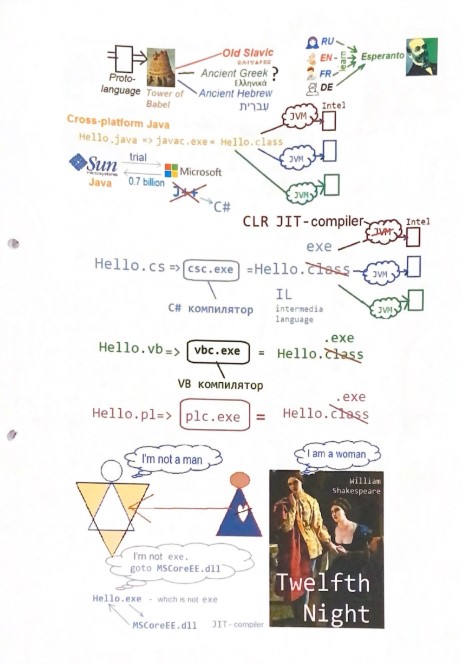 Proto-
language
Tower of
Babel
Old Slavic
Ancient Greek ?
Ελληνικά
Ancient Hebrew
עברית
RU
EN
FR
DE
learn
Esperanto
Cross-platform Java
Hello.java => javac.exe = Hello.class
JVM
Intel
JVM
JVM
Sun
microsystems
Java
trial
0.7 billion
Microsoft
J++
C#
CLR JIT-compiler
exe
JVM
Intel
Hello.cs => csc.exe =Hello.class
JVM
JVM
C# компилятор
IL
intermedia
language
.exe
Hello.vb=> vbc.exe = Hello.class
VB компилятор
.exe
Hello.pl=> plc.exe = Hello.class
I'm not a man
I am a woman
William
Shakespeare
Twelfth
Night
I'm not exe.
goto MSCoreEE.dll
Hello.exe - which is not exe
MSCoreEE.dll JIT-compiler